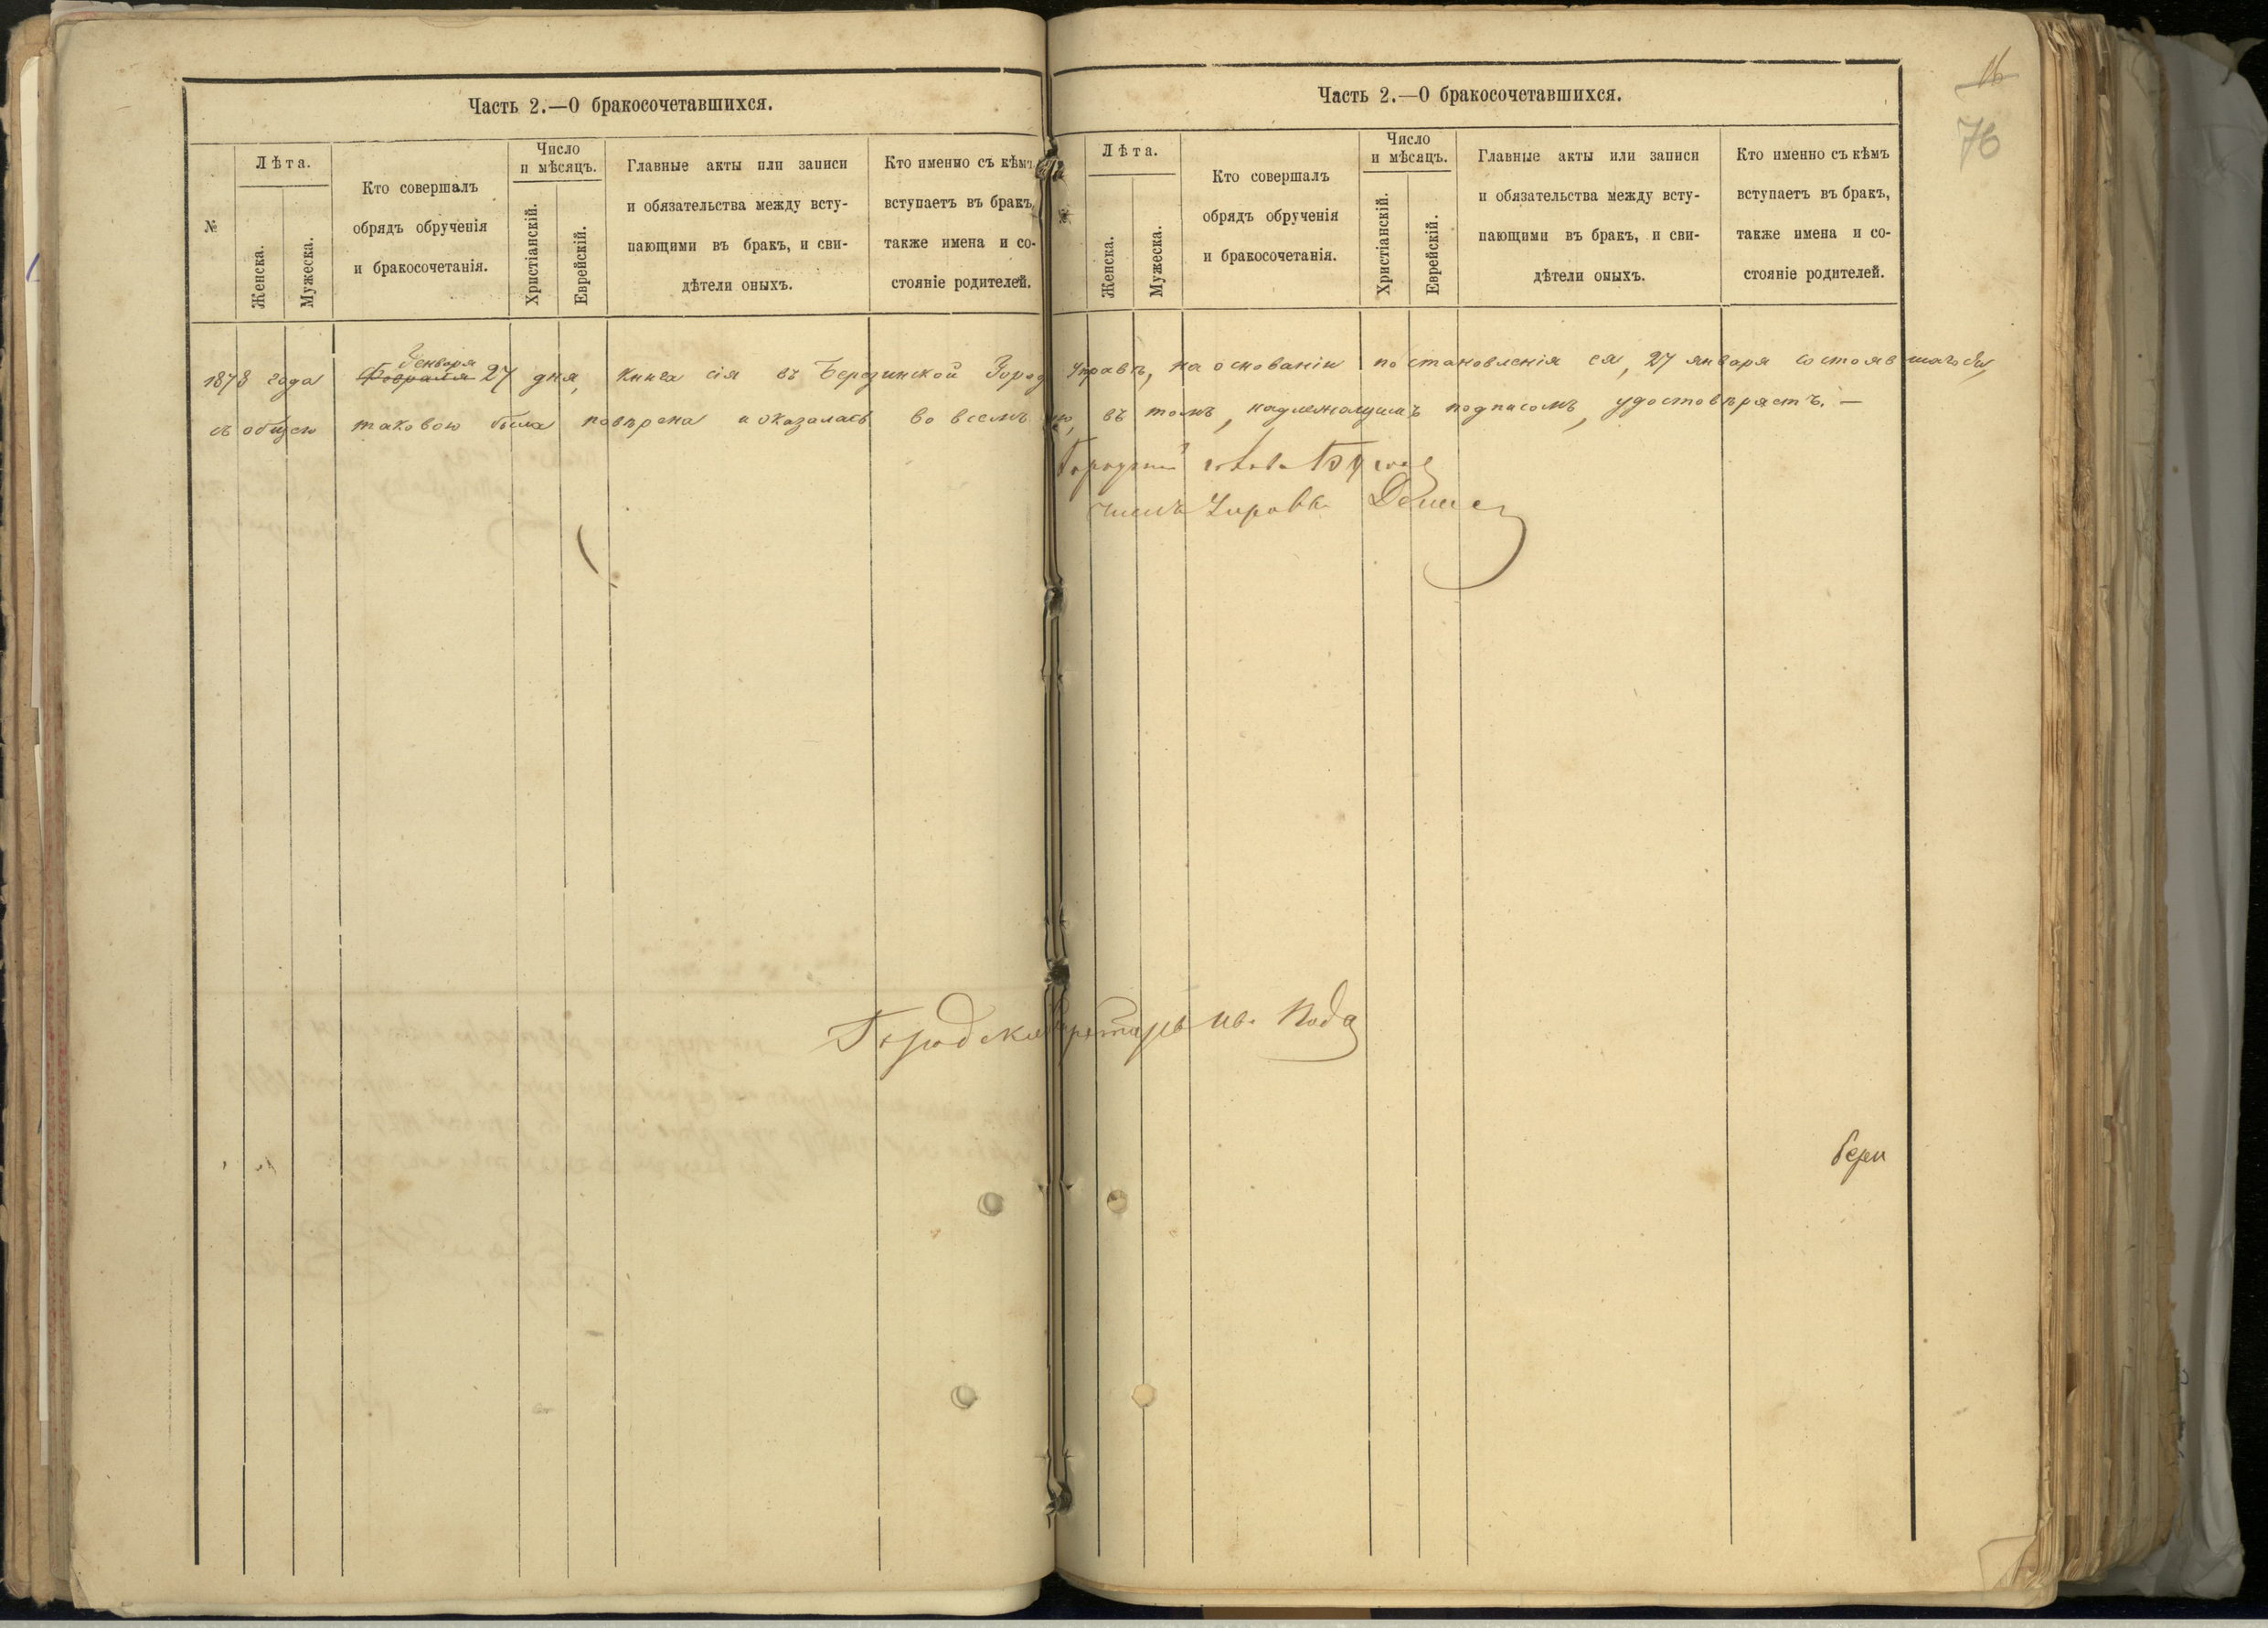 Часть 2.—О бракосочетавшихся.
№
Лѣта.
Женска.
Мужеска.
Кто совершалъ
обрядъ обрученія
и бракосочетанія.
Число
и мѣсяцъ.
Христіанскій.
Еврейскій.
Главные акты или записи
и обязательства между всту-
пающими въ бракъ, и сви-
дѣтели оныхъ.
Кто именно съ кѣмъ
вступаетъ въ бракъ,
также имена и со-
стояніе родителей.
Часть 2.—О бракосочетавшихся.
Лѣта.
Женска.
Мужеска.
Кто совершалъ
обрядъ обрученія
и бракосочетанія.
Число
и мѣсяцъ.
Христіанскій.
Еврейскій.
Главные акты или записи
и обязательства между всту-
пающими въ бракъ, и сви-
дѣтели оныхъ.
Кто именно съ кѣмъ
вступаетъ въ бракъ,
также имена и со-
стояніе родителей.
76
Генваря
1878 года Февраля 27 дня, книга сія въ Березинской Город Управѣ, на основаніи постановленія ея, 27 января состоявшагося,
съ общею таковою была повѣрена и оказалась во всемъ въ томъ, надлежащимъ подписомъ, удостовѣряетъ. —
Городской голова
членъ Управы
Городской секретарь Ив.
бери